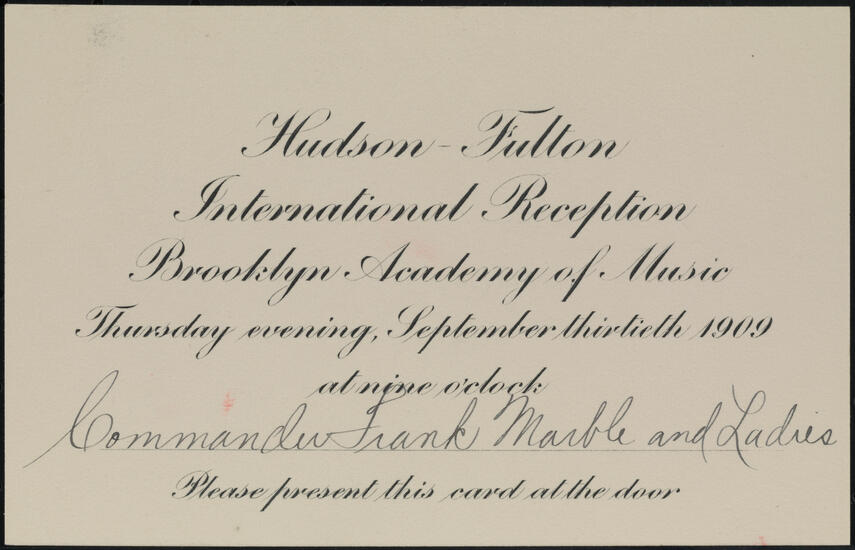 Hudson-Fulton
International Reception
Brooklyn Academy of Music
Thursday evening, September thirtieth 1909
at nine o'clock
Commander Frank Marble and Ladies
Please present this card at the door